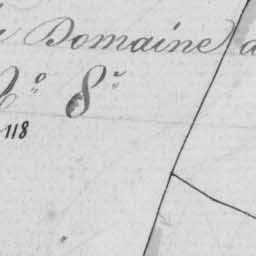 Domaine
N° 8
118